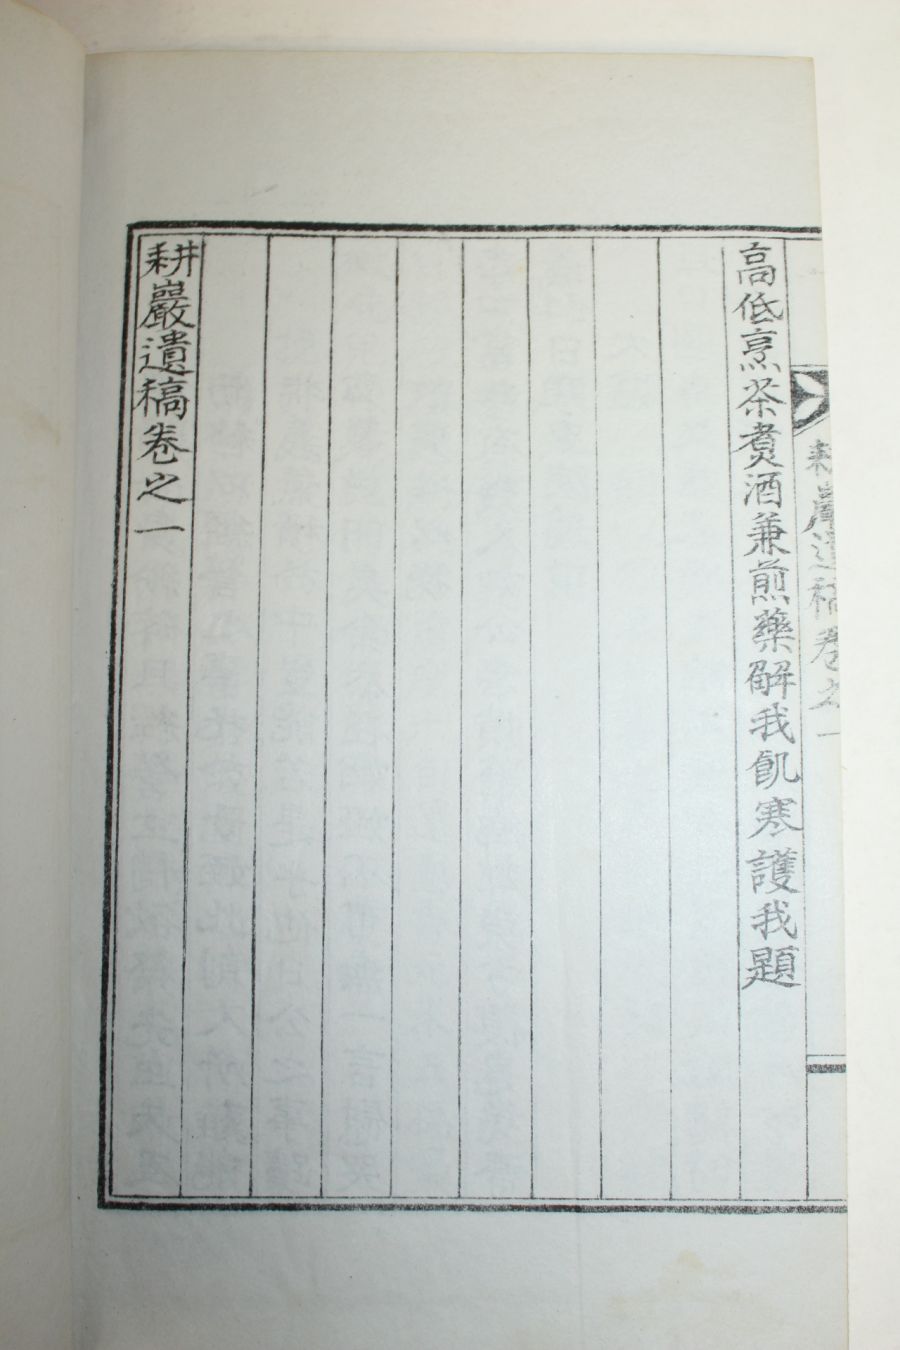 耕巖遺稿卷之一
高低烹茶煑酒兼煎藥解我飢寒護我題
耕巖遺稿卷之一